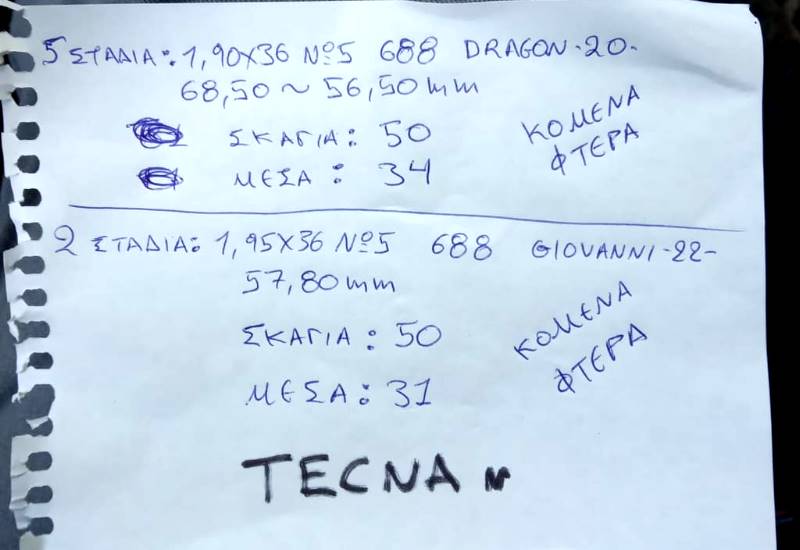 5 ΣΤΑΔΙΑ: 1,90X36 Nº5 688 DRAGON-20-
68,50 ~ 56,50 mm
ΣΚΑΓΙΑ: 50
ΜΕΣΑ: 34
ΚΟΜΕΝΑ
ΦΤΕΡΑ
2 ΣΤΑΔΙΑ: 1,95X36 Nº5 688 GIOVANNI-22-
57,80 mm
ΣΚΑΓΙΑ: 50
ΜΕΣΑ: 31
ΚΟΜΕΝΑ
ΦΤΕΡΑ
TECNA